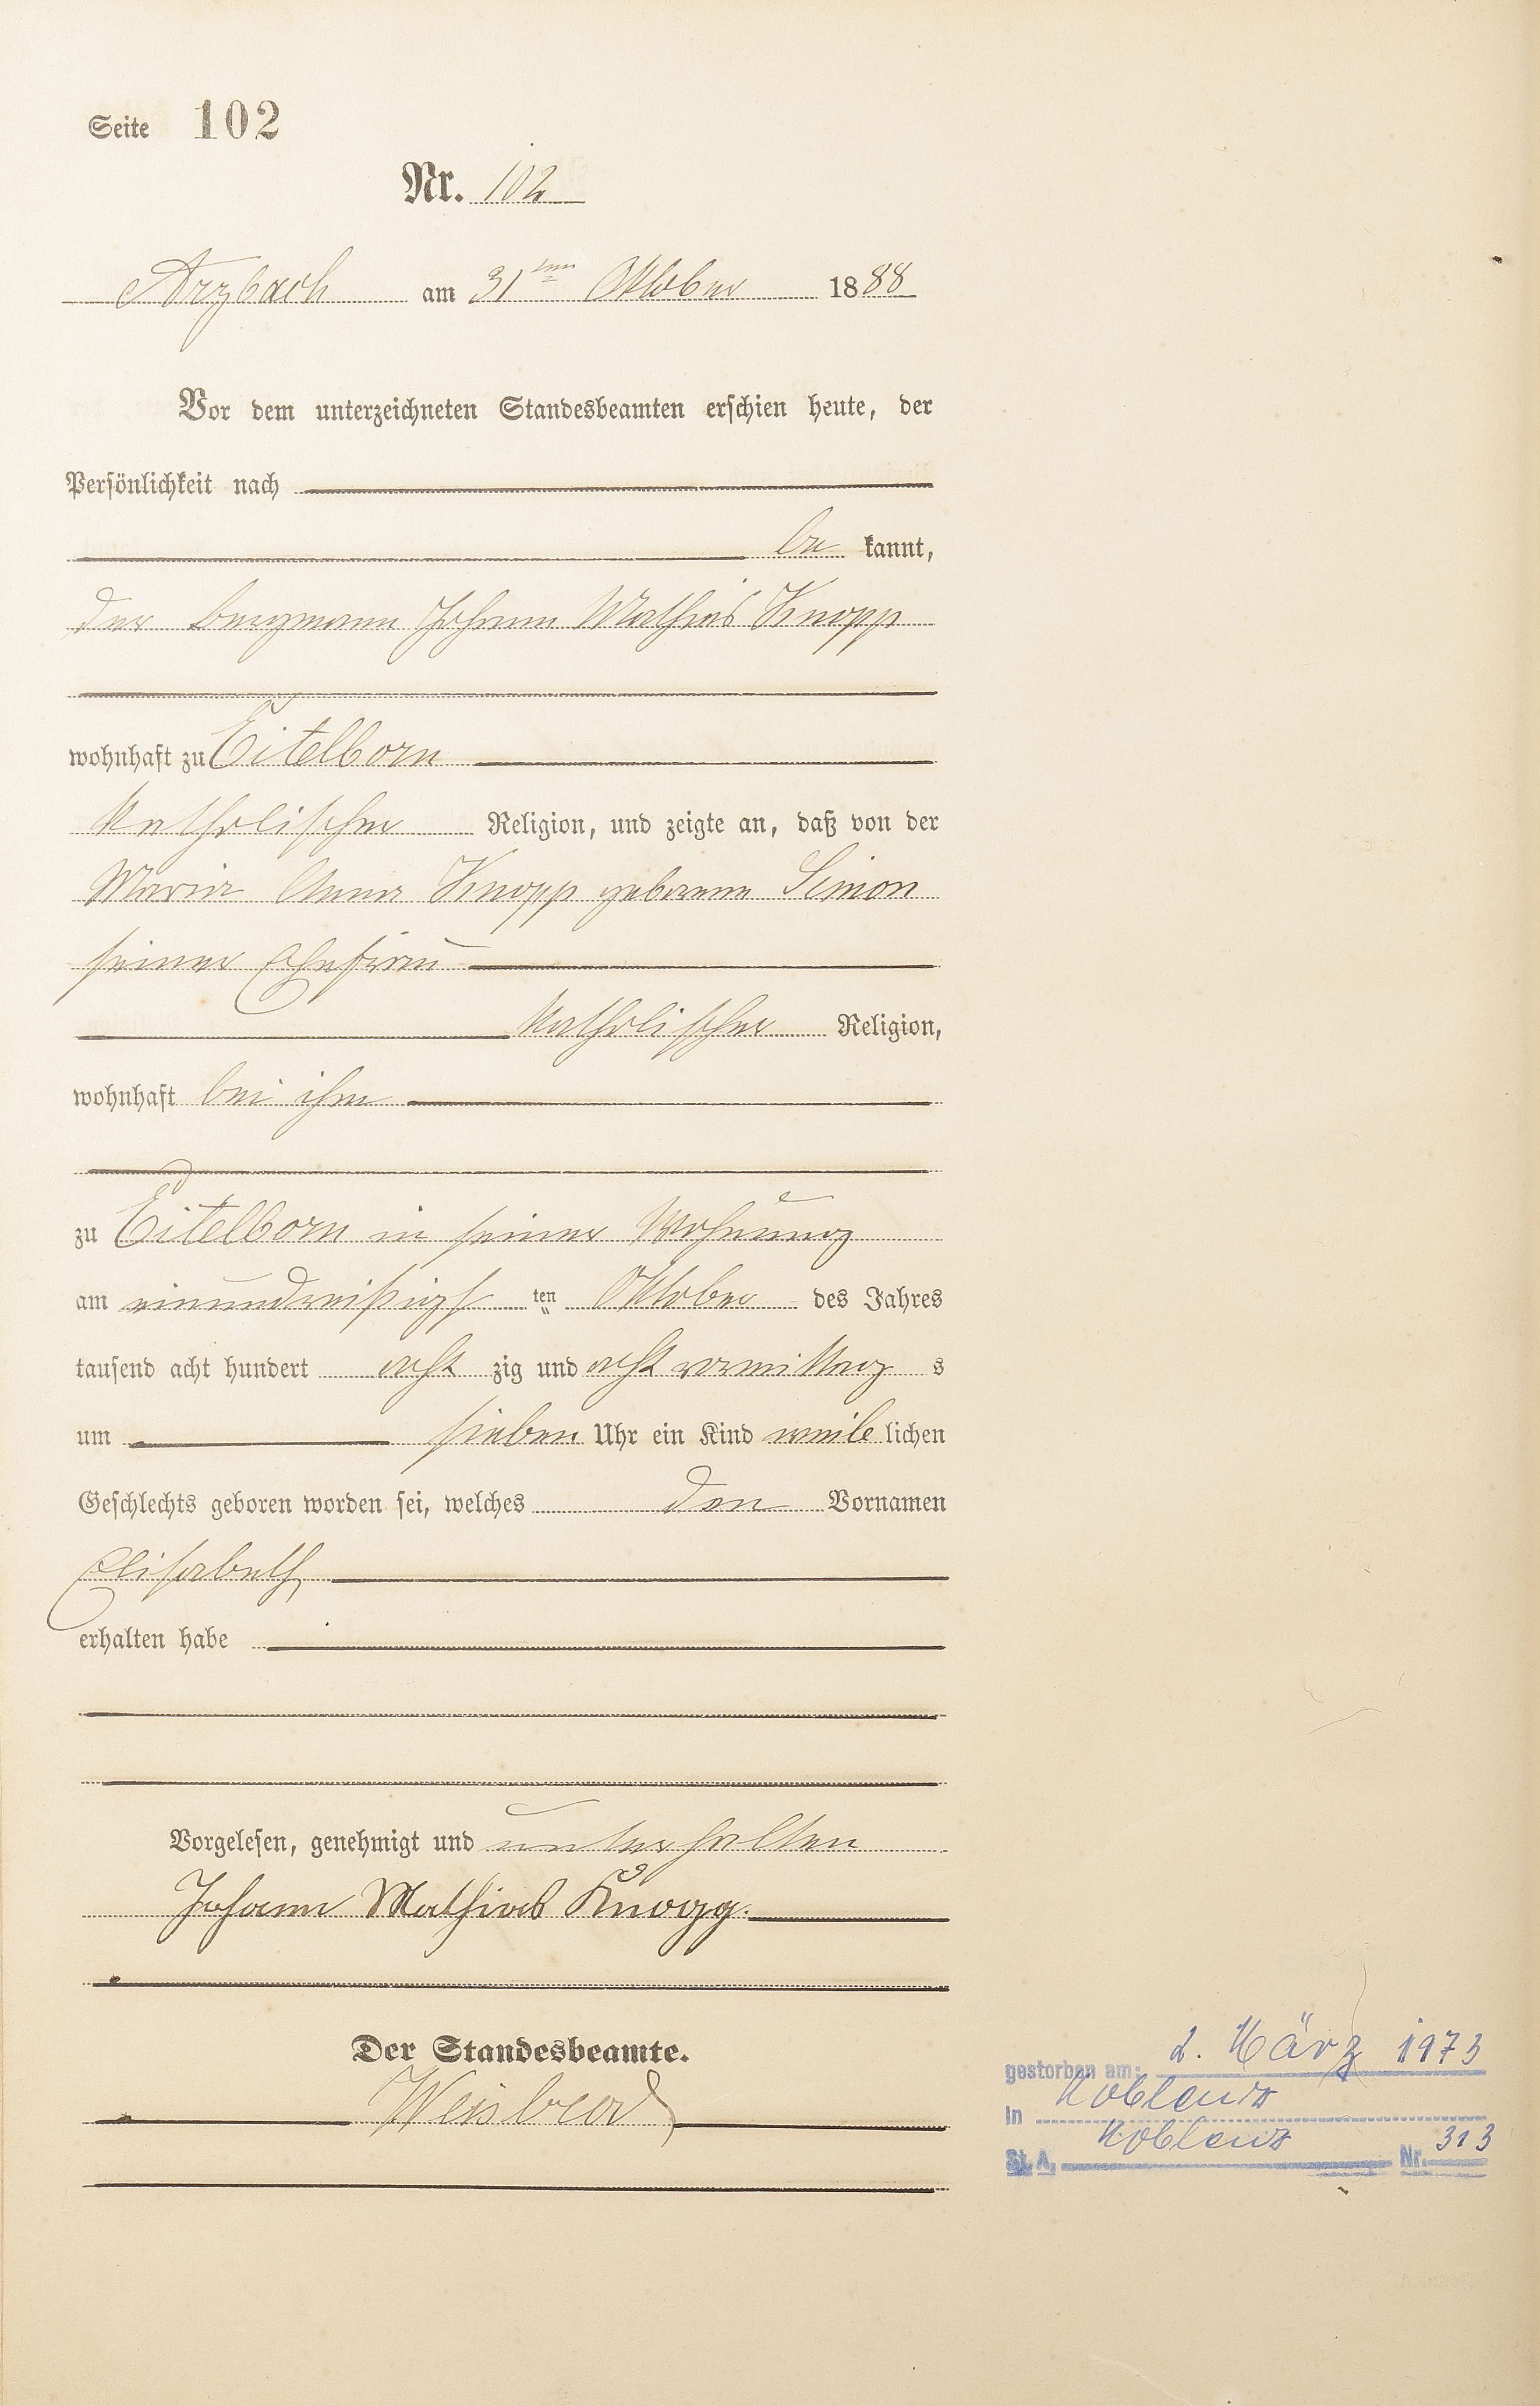 Seite 102
Nr. 102
Arzbach am 31ten Oktober 1888
Vor dem unterzeichneten Standesbeamten erschien heute, der
Persönlichkeit nach
be kannt,
der Bergmann Johann Mathias Knopp
wohnhaft zu Eitelborn
katholischer Religion, und zeigte an, daß von der
Maria Anna Knopp geborene Simon
seiner Ehefrau
katholischer Religion,
wohnhaft bei ihm
zu Eitelborn in seiner Wohnung
am einunddreißigst ten Oktober des Jahres
tausend acht hundert acht zig und acht vormittag s
um sieben Uhr ein Kind weib lichen
Geschlechts geboren worden sei, welches den Vornamen
Elisabeth
erhalten habe
Vorgelesen, genehmigt und
Johann Mathias Knopp.
Der Standesbeamte.
Weisbrod
gestorben am: 2. März 1973
in Koblenz
St. A. Koblenz Nr. 313